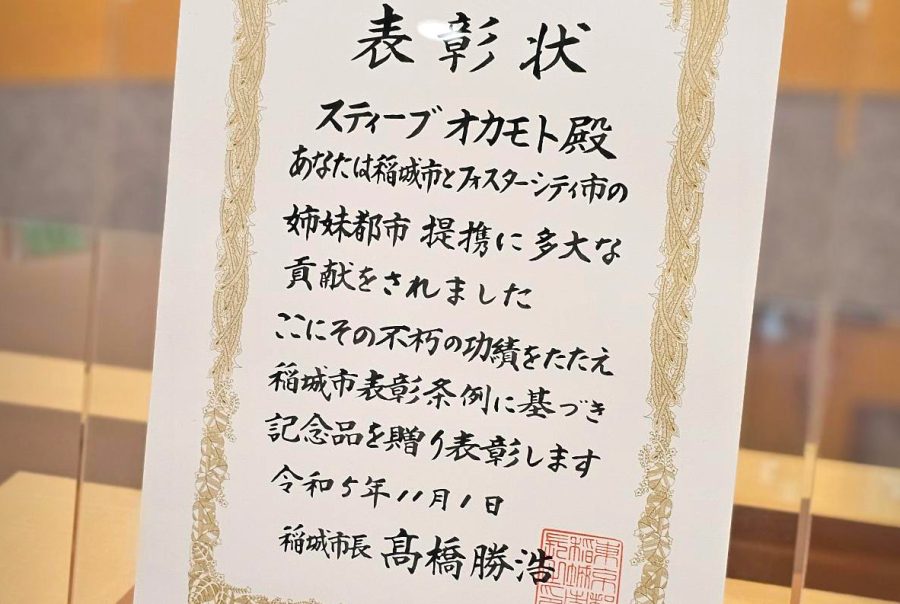 表彰状
スティーブ オカモト殿
あなたは稲城市とフォスターシティ市の
姉妹都市 提携に多大な
貢献をされました
ここにその不朽の功績をたたえ
稲城市表彰条例に基づき
記念品を贈り表彰します
令和5年11月1日
稲城市長 髙橋勝浩